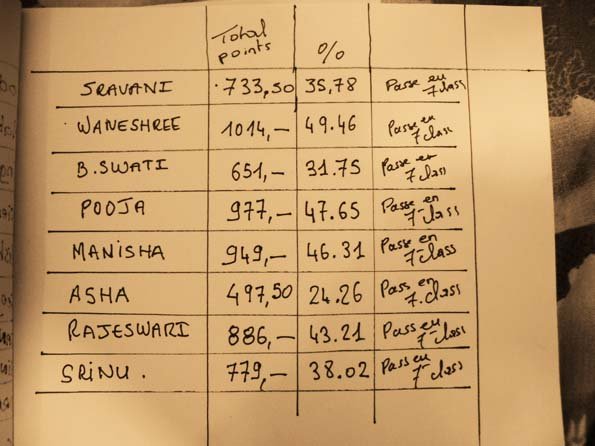 Total points %
SRAVANI 733,50 35,78 Passe en 7 class
WANESHREE 1014,— 49.46 Passe en 7 class
B.SWATI 651,— 31.75 Passe en 7 class
POOJA 977,— 47.65 Passe en 7 class
MANISHA 949,— 46.31 Passe en 7 class
ASHA 497,50 24.26 Pass en 7 class
RAJESWARI 886,— 43.21 Pass en 7 class
SRINU. 779,— 38.02 Pass en 7 class